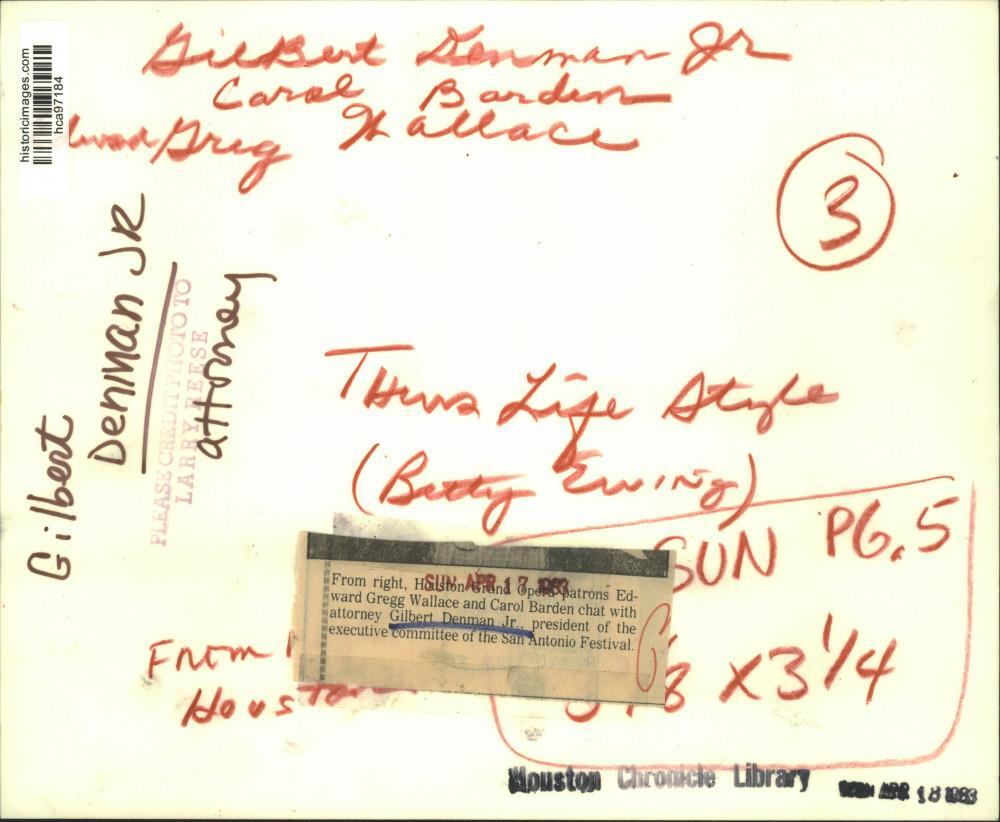 historicimages.com
hca97184
Gilbert Denman Jr
Carol Barden
Greg Wallace
3
Gilbert
Denman JR
attorney
PLEASE CREDIT PHOTO TO
LARRY REESE
Thurs Life Style
(Betty Ewing)
SUN PG. 5
SUN APR 17 1983
From right, Houston Grand Opera patrons Ed-
ward Gregg Wallace and Carol Barden chat with
attorney Gilbert Denman Jr., president of the
executive committee of the San Antonio Festival.
From
Houston
x 3 1/4
Houston Chronicle Library
APR 18 1983